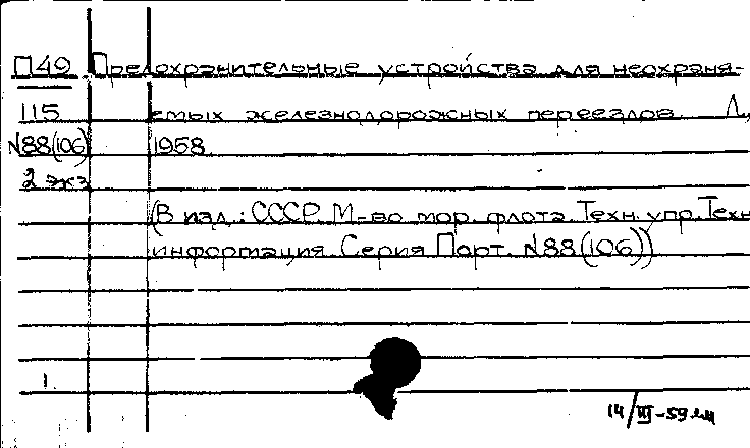 П49 Предохранительные устройства для неохраня-
115 емых железнодорожных переездов. Л.,
№88(106) 1958.
2 экз
(В изд.: СССР. М-во мор. флота. Техн. упр. Техн
информация. Серия Порт. №88(106))
1.
14/III-59